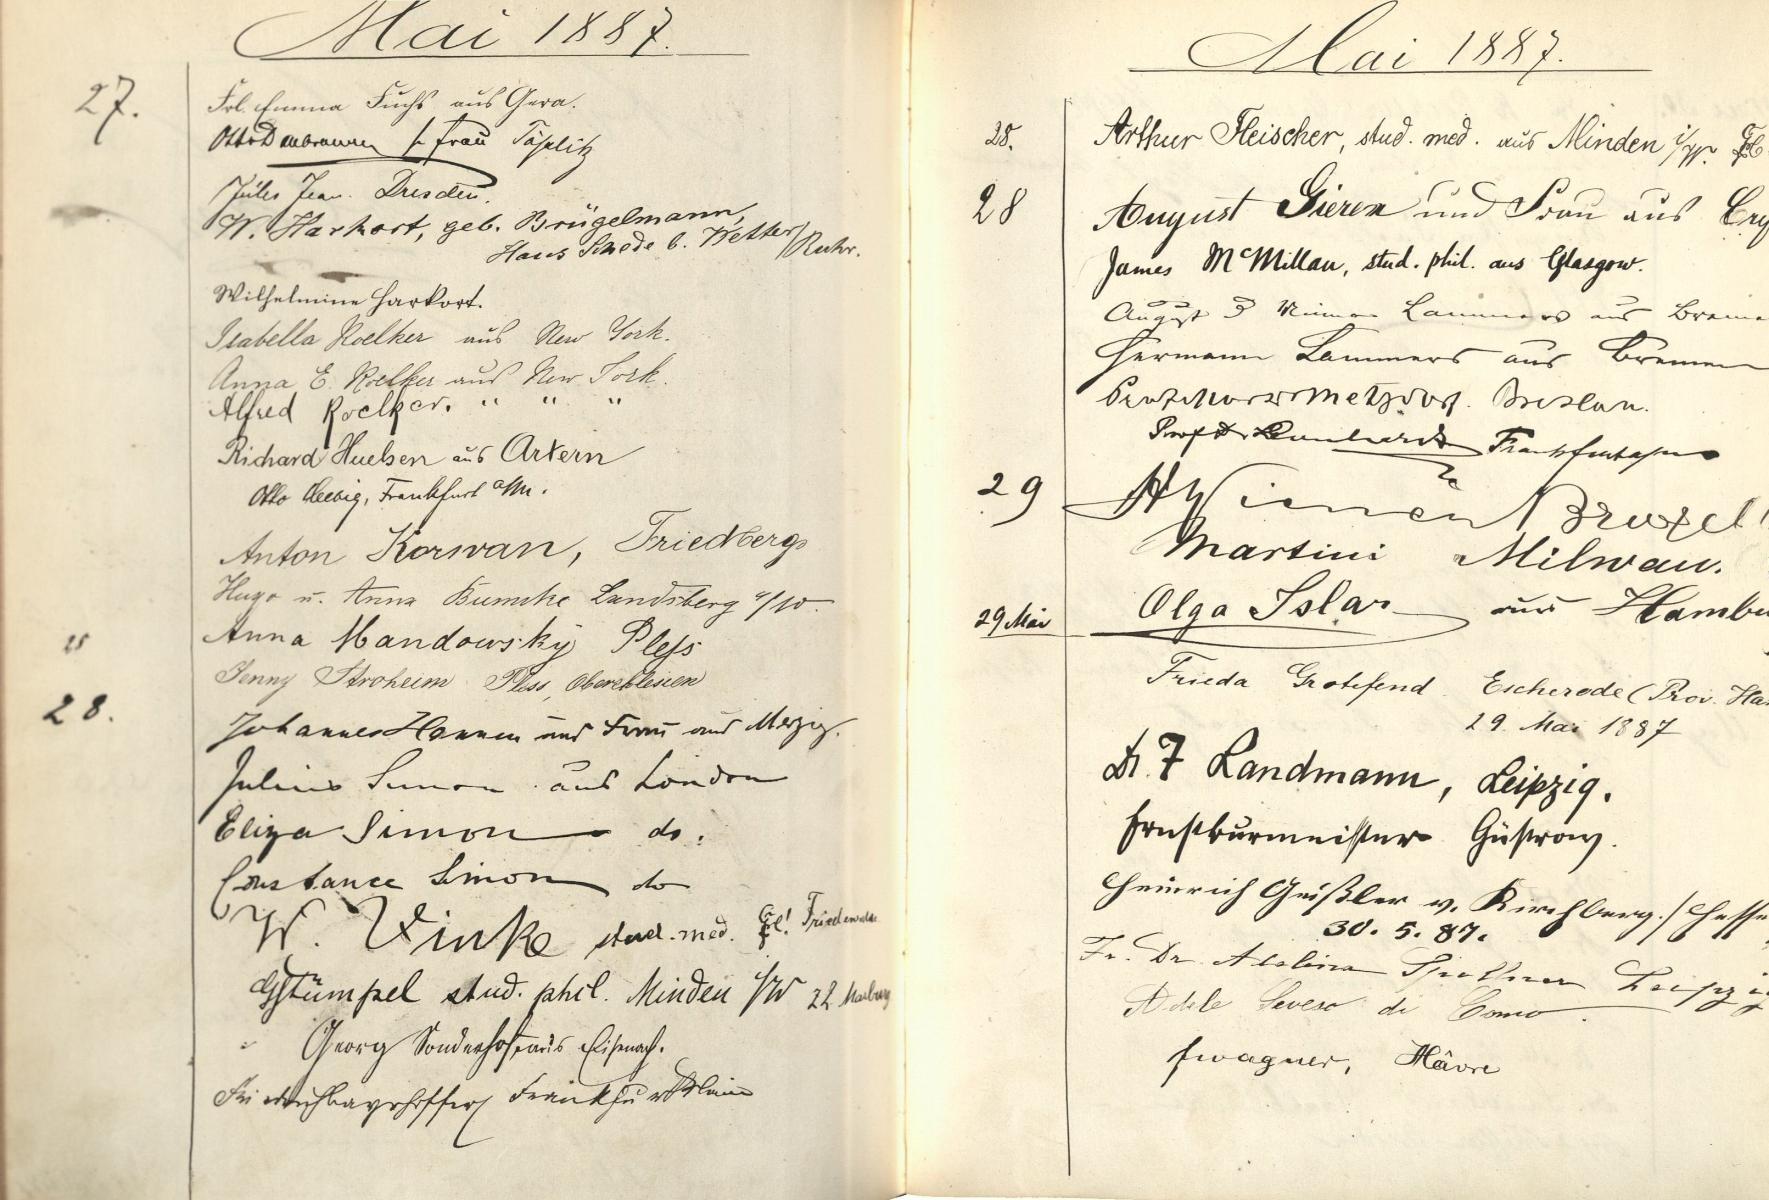 Mai 1887.
27.
Frl. Emma Fuchs aus Gera.
Otto & Frau Töplitz
Jules Jean. Dresden.
W. Harkort, geb. Brügelmann,
Haus Schede b. Wetter/Ruhr.
Wilhelmine Harkort.
Isabella Roelker aus New York.
Anna E. Roelker aus New York.
Alfred Roelker. " " "
Richard Huelsen aus Artern
Otto Frankfurt a/M.
Anton Korwan, Friedberg
Hugo u. Anna Landsberg a/W.
Anna Mandowsky Pless
Jenny Stroheim Pless, Oberschlesien
28.
Johannes Hannen und Frau aus Merzig.
Julius Simon aus London
Eliza Simon do.
Constance Simon do
W. Vinke stud. med.
GStümpel stud. phil. Minden i/W Marburg
" Georg Sonderhof aus Eisenach.
Friedrich Frankfurt a/Main
Mai 1887.
28. Arthur Fleischer, stud. med. aus Minden i/W.
28 August Gieren und Frau aus
James McMillan, stud. phil. aus Glasgow.
August & Lammers aus Breme
Hermann Lammers aus Bremen
Breslau.
Prof Dr Frankfurt
29
Martini Milwau.
29 Mai Olga Islar aus Hambu
Frieda Grotefend Escherode (Prov. Han
29. Mai 1887
Dr. F Landmann, Leipzig.
Ernst Burmeister Güstrow.
Heinrich Geißler v. Kirchberg/Hesse
30. 5. 87.
Fr. Dr. Leipzig
Adele Seveso di Como.
Wagner, Hâvre